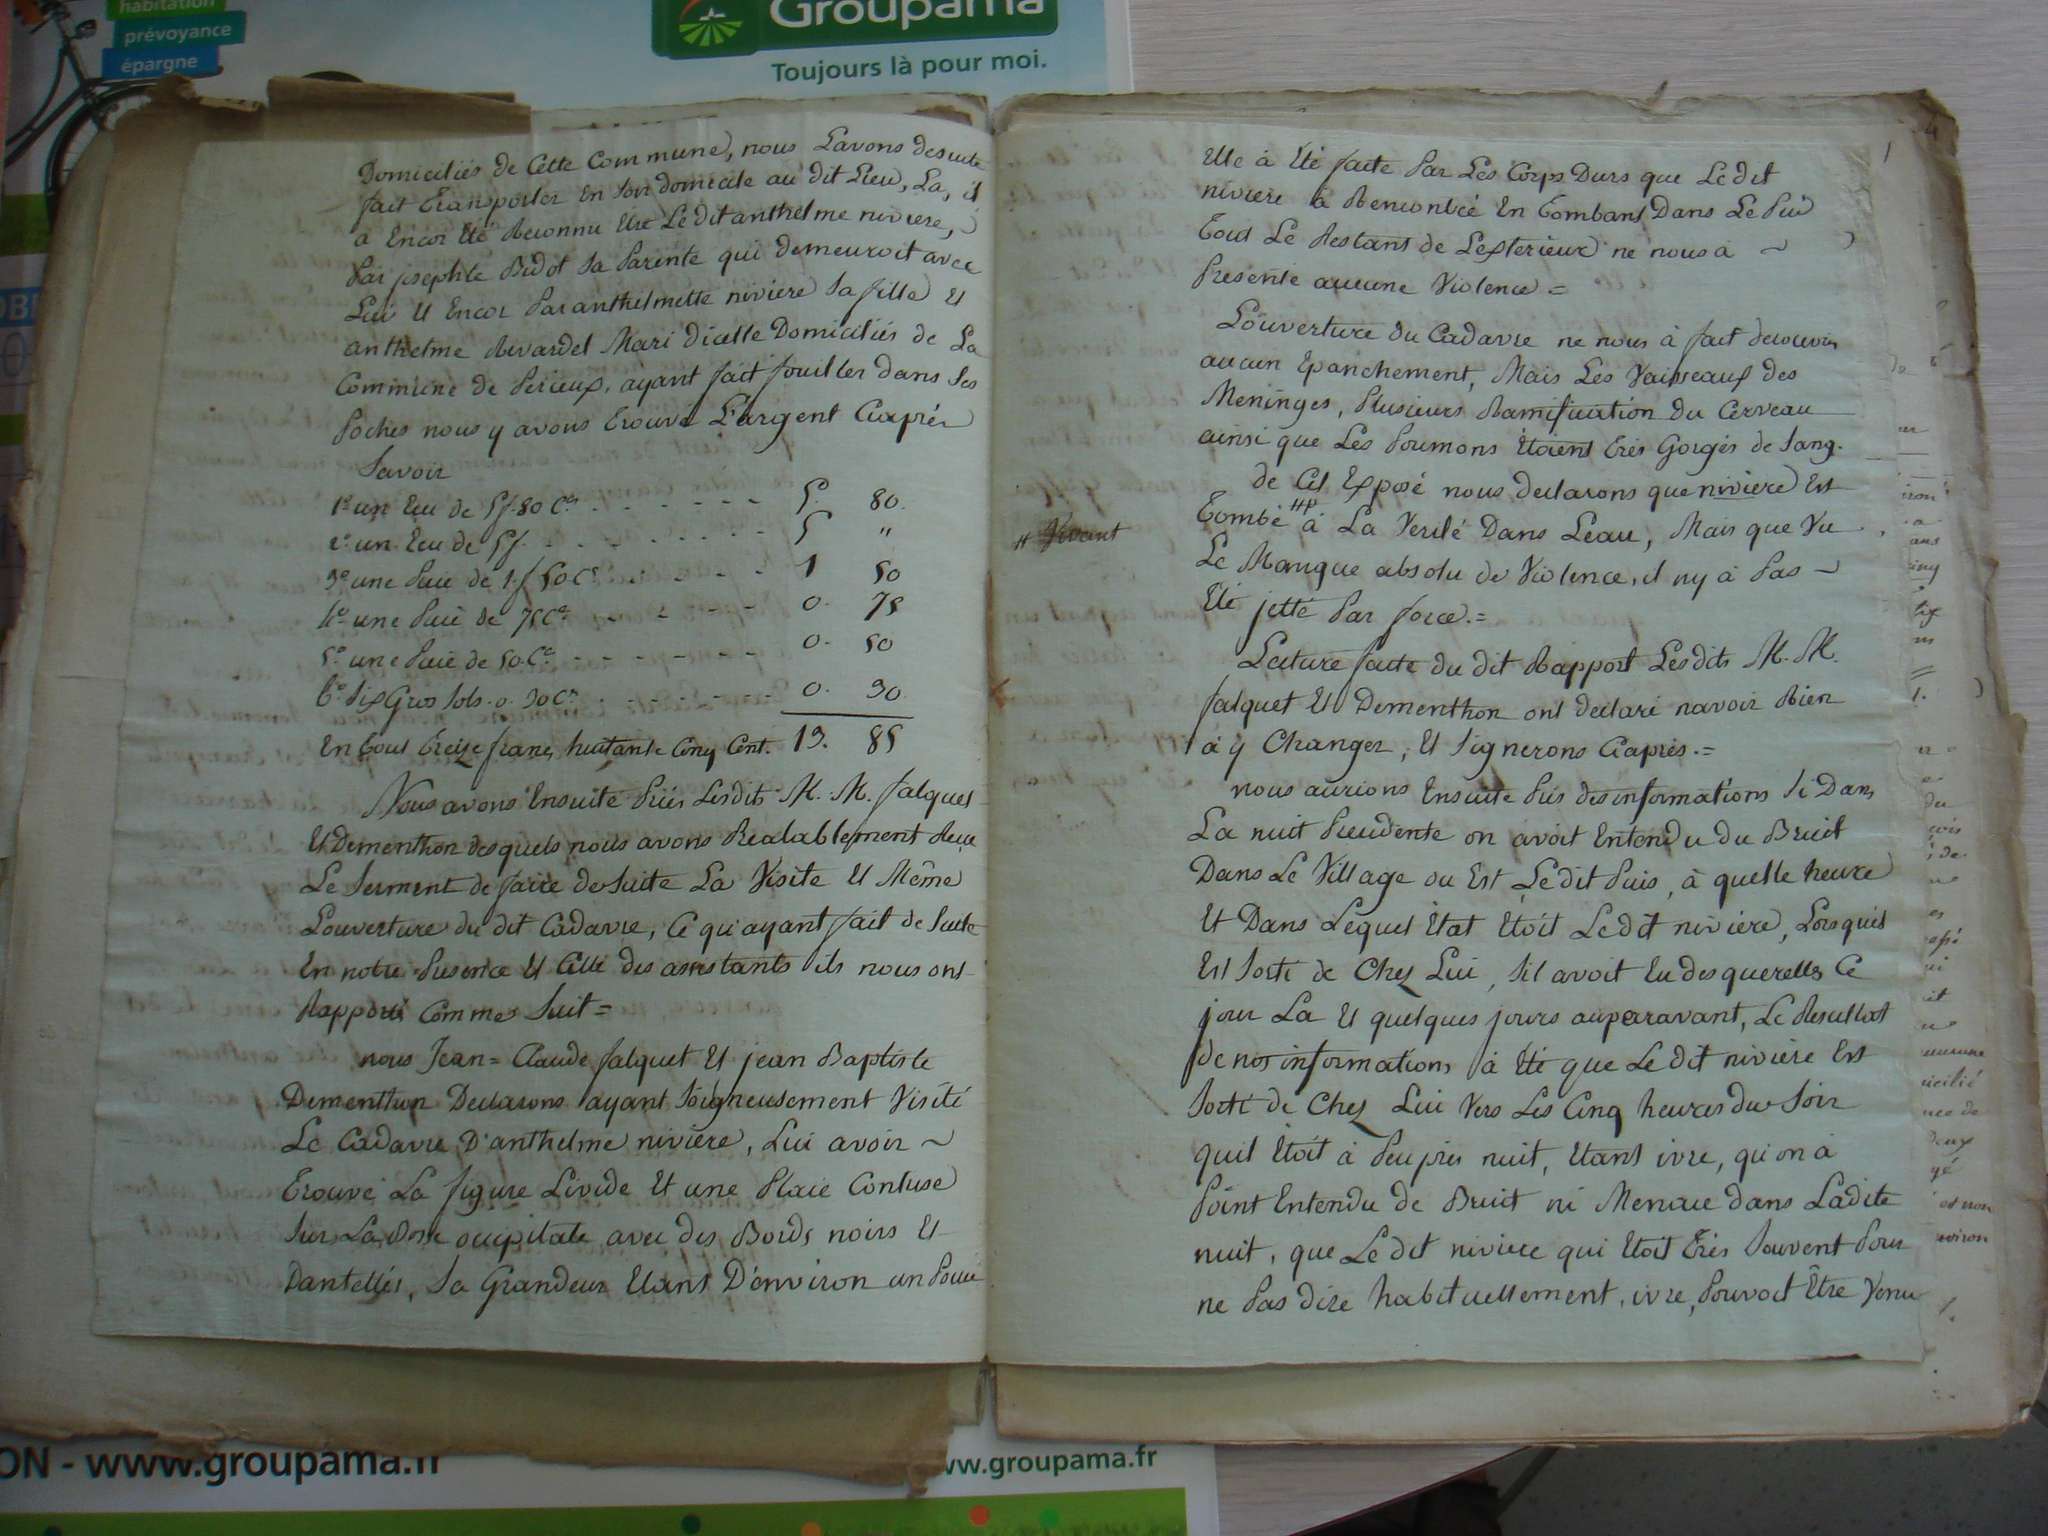 habitation
prévoyance
épargne
Groupama
Toujours là pour moi.
Domiciliés de Cette Commune, nous Lavons desuite
fait Transporter En son domicile au dit Lieu, La, il
a Encor Eté Reconnu Etre Ledit anthelme niviere,
Par josephte Bidot sa Parente qui demeuroit avec
Lui Et Encor Par anthelmette niviere sa fille Et
anthelme Rivardel Mari dicelle Domiciliés de La
Commune de Perieux, ayant fait fouiller dans ses
Poches nous y avons Trouvé L'argent Ciaprés
Savoir
1º un Ecu de 5f. 80 Cs - - - - - - 5. 80.
2º un Ecu de 5f. - - - - - - - - 5 "
3º une Piéce de 1f 50 Cs - - - - - 1 50
4º une Piéce de 75 Cs - - - - 0. 75
5º une Piéce de 50. Cs - - - - - - 0. 50
6º Six Gros Sols. o. 30 Cs - - - - - - 0. 30
En tout Treize francs huitante Cinq Cent. 13. 85
Nous avons Ensuite Priés Lesdits M. M. falquet
Et Dementhon desquels nous avons Préalablement Reçu
Le Serment de faire de Suite La Visite Et Même
L'ouverture du dit Cadavre, Ce qu'ayant fait de Suite
En notre Présence Et Celle des assistants ils nous ont
Rapporté Comme Suit =
nous Jean = Claude falquet Et jean Baptiste
Dementhon Declarons ayant soigneusement Visité
Le Cadavre D'anthelme niviere, Lui avoir ~
Trouvé La figure Livide Et une Plaie Contuse
sur La occipitale avec des Bords noirs Et
Dantellés, Sa Grandeur Etant D'environ un Pouce
4
1
Elle à Eté faite Par Les Corps Durs que Le dit
niviere à Rencontré En Tombant Dans Le Puis
Tout Le Restant de L'exterieur ne nous a ~
Presenté aucune Violence =
L'ouverture du Cadavre ne nous à fait decouvrir
aucun Epanchement, Mais Les Vaisseaux des
Meninges, Plusieurs Ramification du Cerveau
ainsi que Les Poumons Etoient Trés Gorgés de Sang.
de Cet Exposé nous declarons que niviere Est
Tombé à La Verité Dans L'eau, Mais que Vu
# Vivant
Le Manque absolu de Violence, il ny à Pas ~
Eté jetté Par force. =
Lecture faite du dit Rapport Lesdits M. M.
falquet Et Dementhon ont declaré navoir Rien
à y Changer, Et Signerons Ciaprés. =
nous aurions Ensuite Pris des informations Si Dans
La nuit Precedente on avoit Entendu du Bruit
Dans Le Village ou Est Le dit Puis, à quelle heure
Et Dans Lequel Etat Etoit Ledit niviere, Lorsquil
Est Sorti de Chez Lui, Sil avoit Eu des querelles Ce
jour La Et quelques jours auparavant, Le Resultat
de nos informations à Eté que Le dit niviere Est
Sorti de Chez Lui Vers Les Cinq heures du Soir
quil Etoit à Peu prés nuit, Etant ivre, qu'on à
Point Entendu de Bruit ni Menace dans Ladite
nuit, que Le dit niviere qui Etoit Trés Souvent Pour
ne Pas dire habituellement, ivre, Pouvoit Etre Venu
ON - www.groupama.fr
ww.groupama.fr